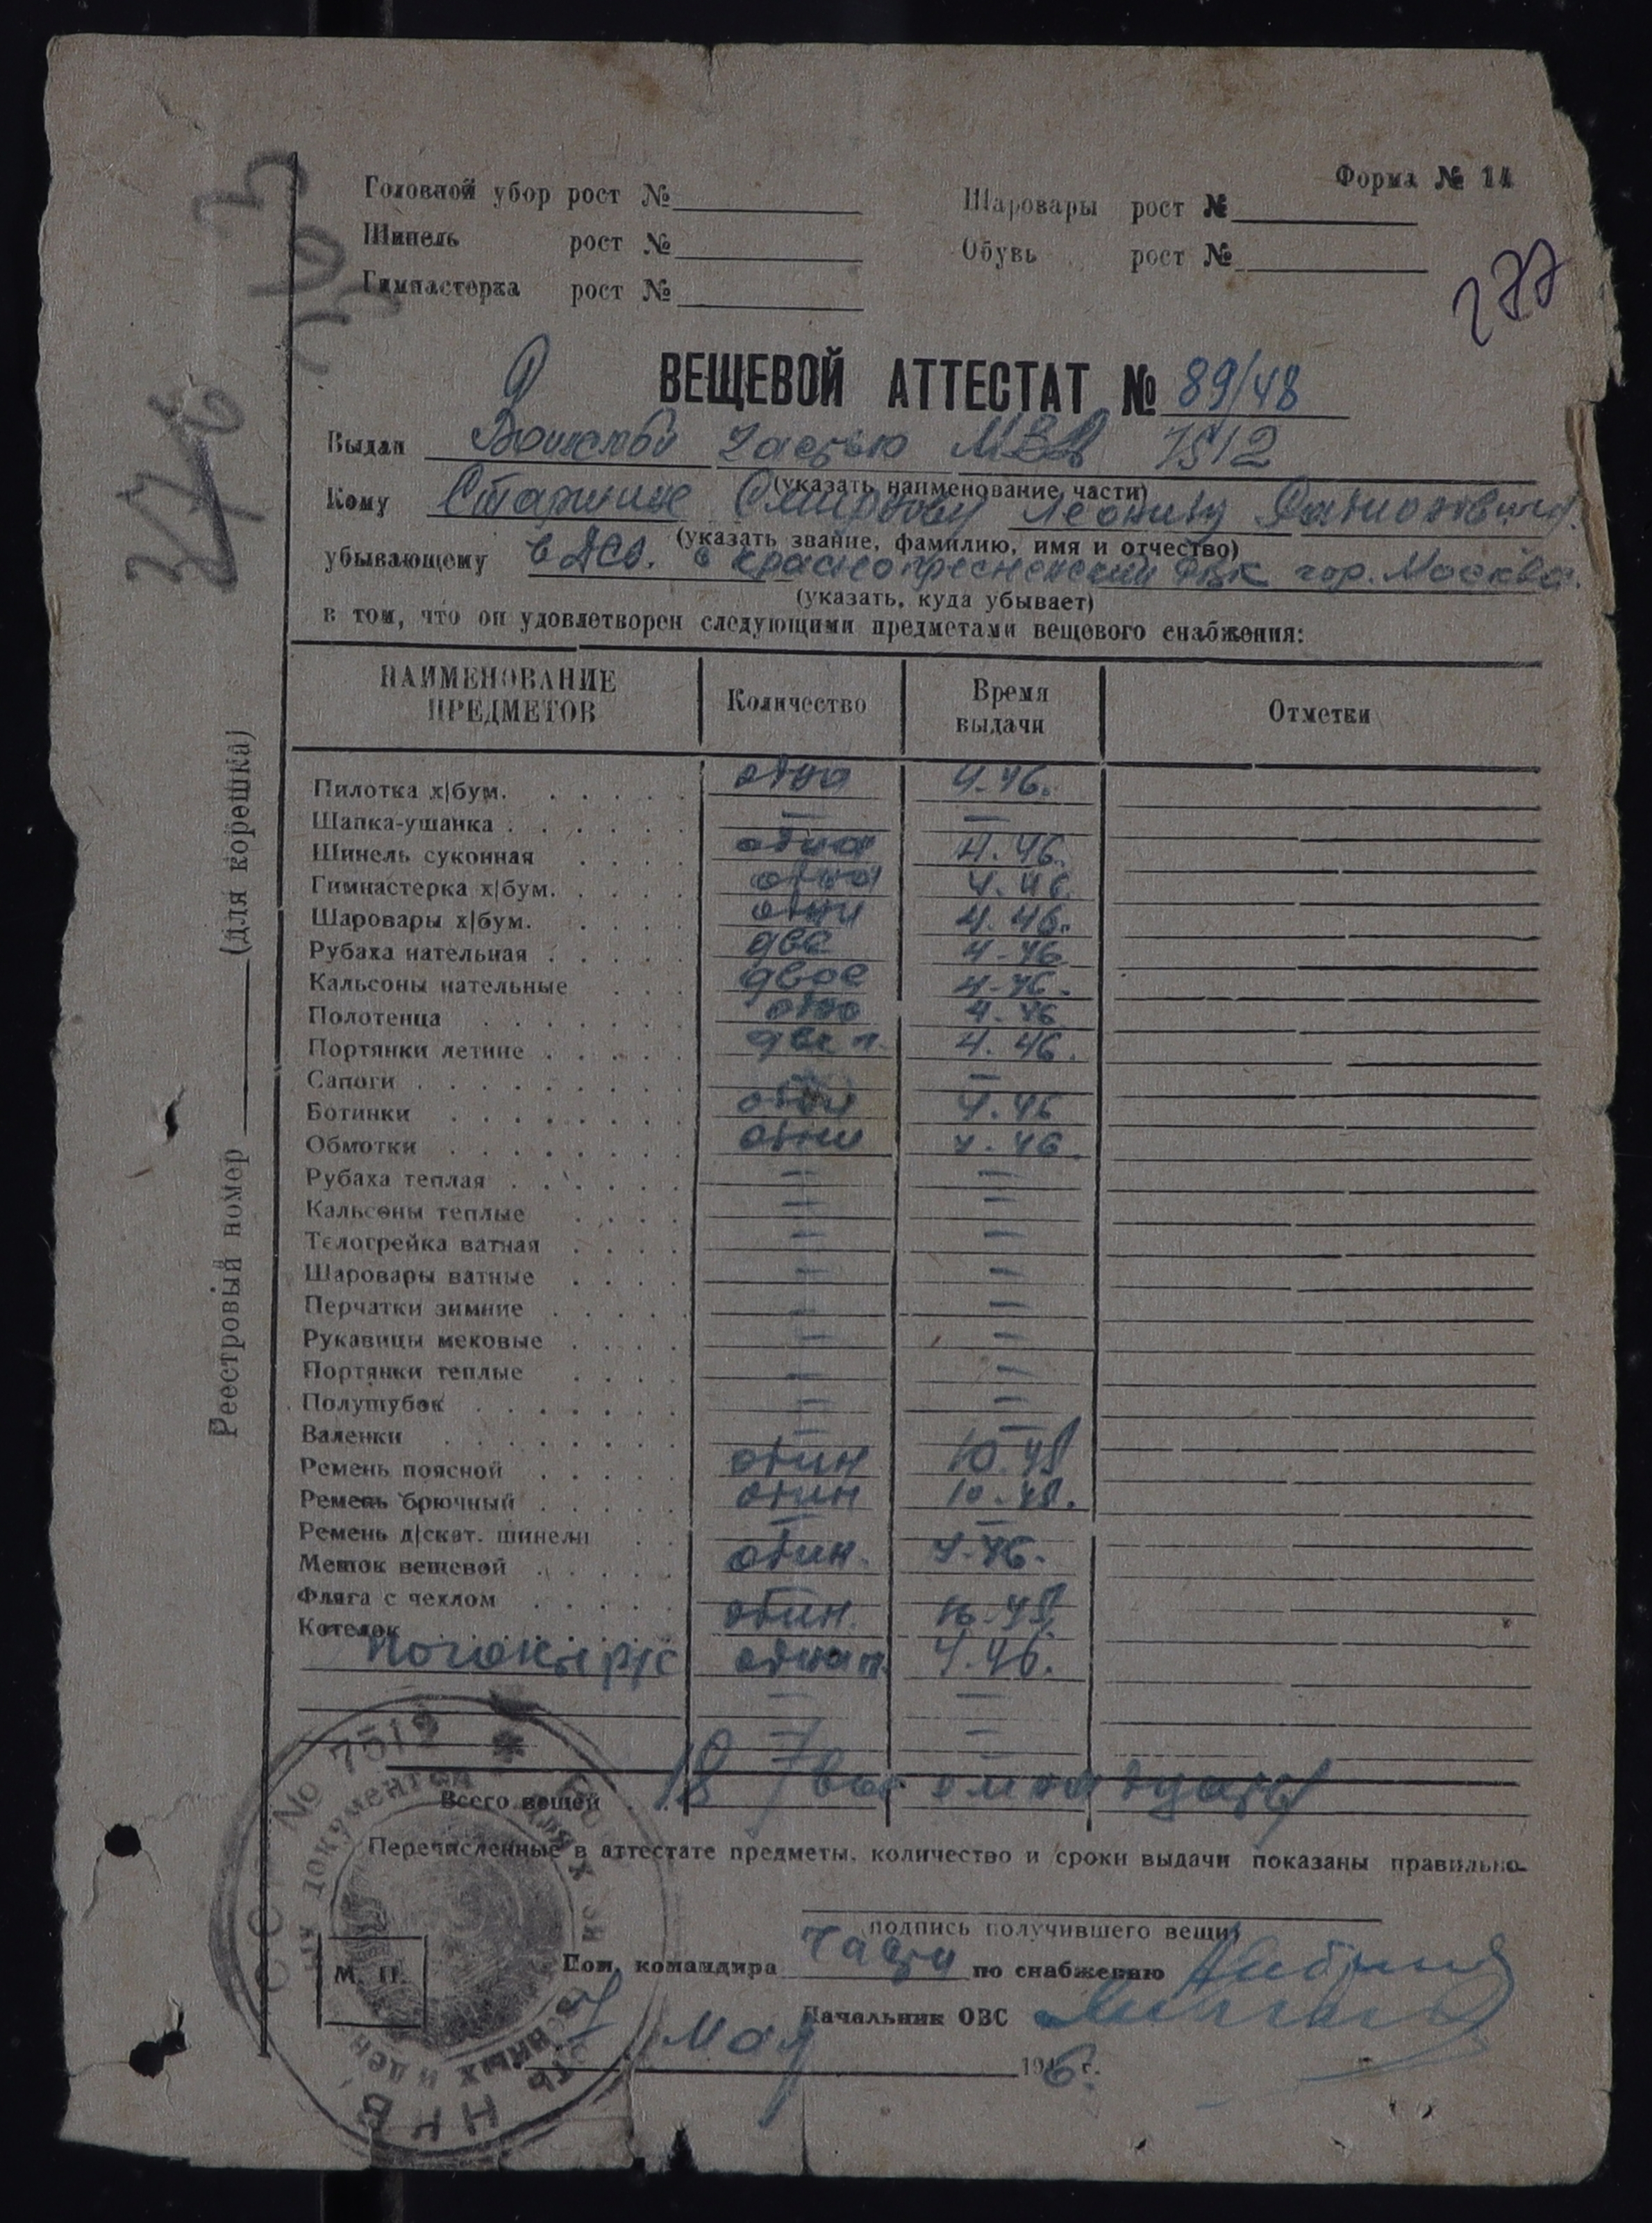 Форма № 14
Головной убор рост №
Шаровары рост №
Шинель рост №
Обувь рост №
Гимнастерка рост №
277
ВЕЩЕВОЙ АТТЕСТАТ № 89/48
Выдан частью МВД 7512
(указать наименование части)
Кому Старшине Смирнову Леониду
(указать звание, фамилию, имя и отчество)
убывающему в Краснопресненский РВК гор. Москва.
(указать, куда убывает)
в том, что он удовлетворен следующими предметами вещевого снабжения:
НАИМЕНОВАНИЕ ПРЕДМЕТОВ Количество Время выдачи Отметки
Пилотка х|бум. одна 4.46.
Шапка-ушанка — —
Шинель суконная одна 4.46.
Гимнастерка х|бум. одна 4.46
Шаровары х|бум. одни 4.46.
Рубаха нательная две 4-46
Кальсоны нательные двое 4-46.
Полотенца одно 4.46
Портянки летние две п. 4.46.
Сапоги — —
Ботинки одни 4.46
Обмотки одни 4.46.
Рубаха теплая — —
Кальсоны теплые — —
Телогрейка ватная — —
Шаровары ватные — —
Перчатки зимние — —
Рукавицы меховые — —
Портянки теплые — —
Полушубок — —
Валенки — —
Ремень поясной один 10.45
Ремень брючный один 10-45.
Ремень д|скат. шинели — —
Мешок вещевой один. 4-46.
Фляга с чехлом
Котелок один. 10.45
одна п. 4.46.
Всего вещей 18
Перечисленные в аттестате предметы, количество и сроки выдачи показаны правильно
подпись получившего вещи
Пом. командира части по снабжению
Начальник ОВС
М. П.
Мая 1946 г.
Реестровый номер (для корешка)
№ 7512